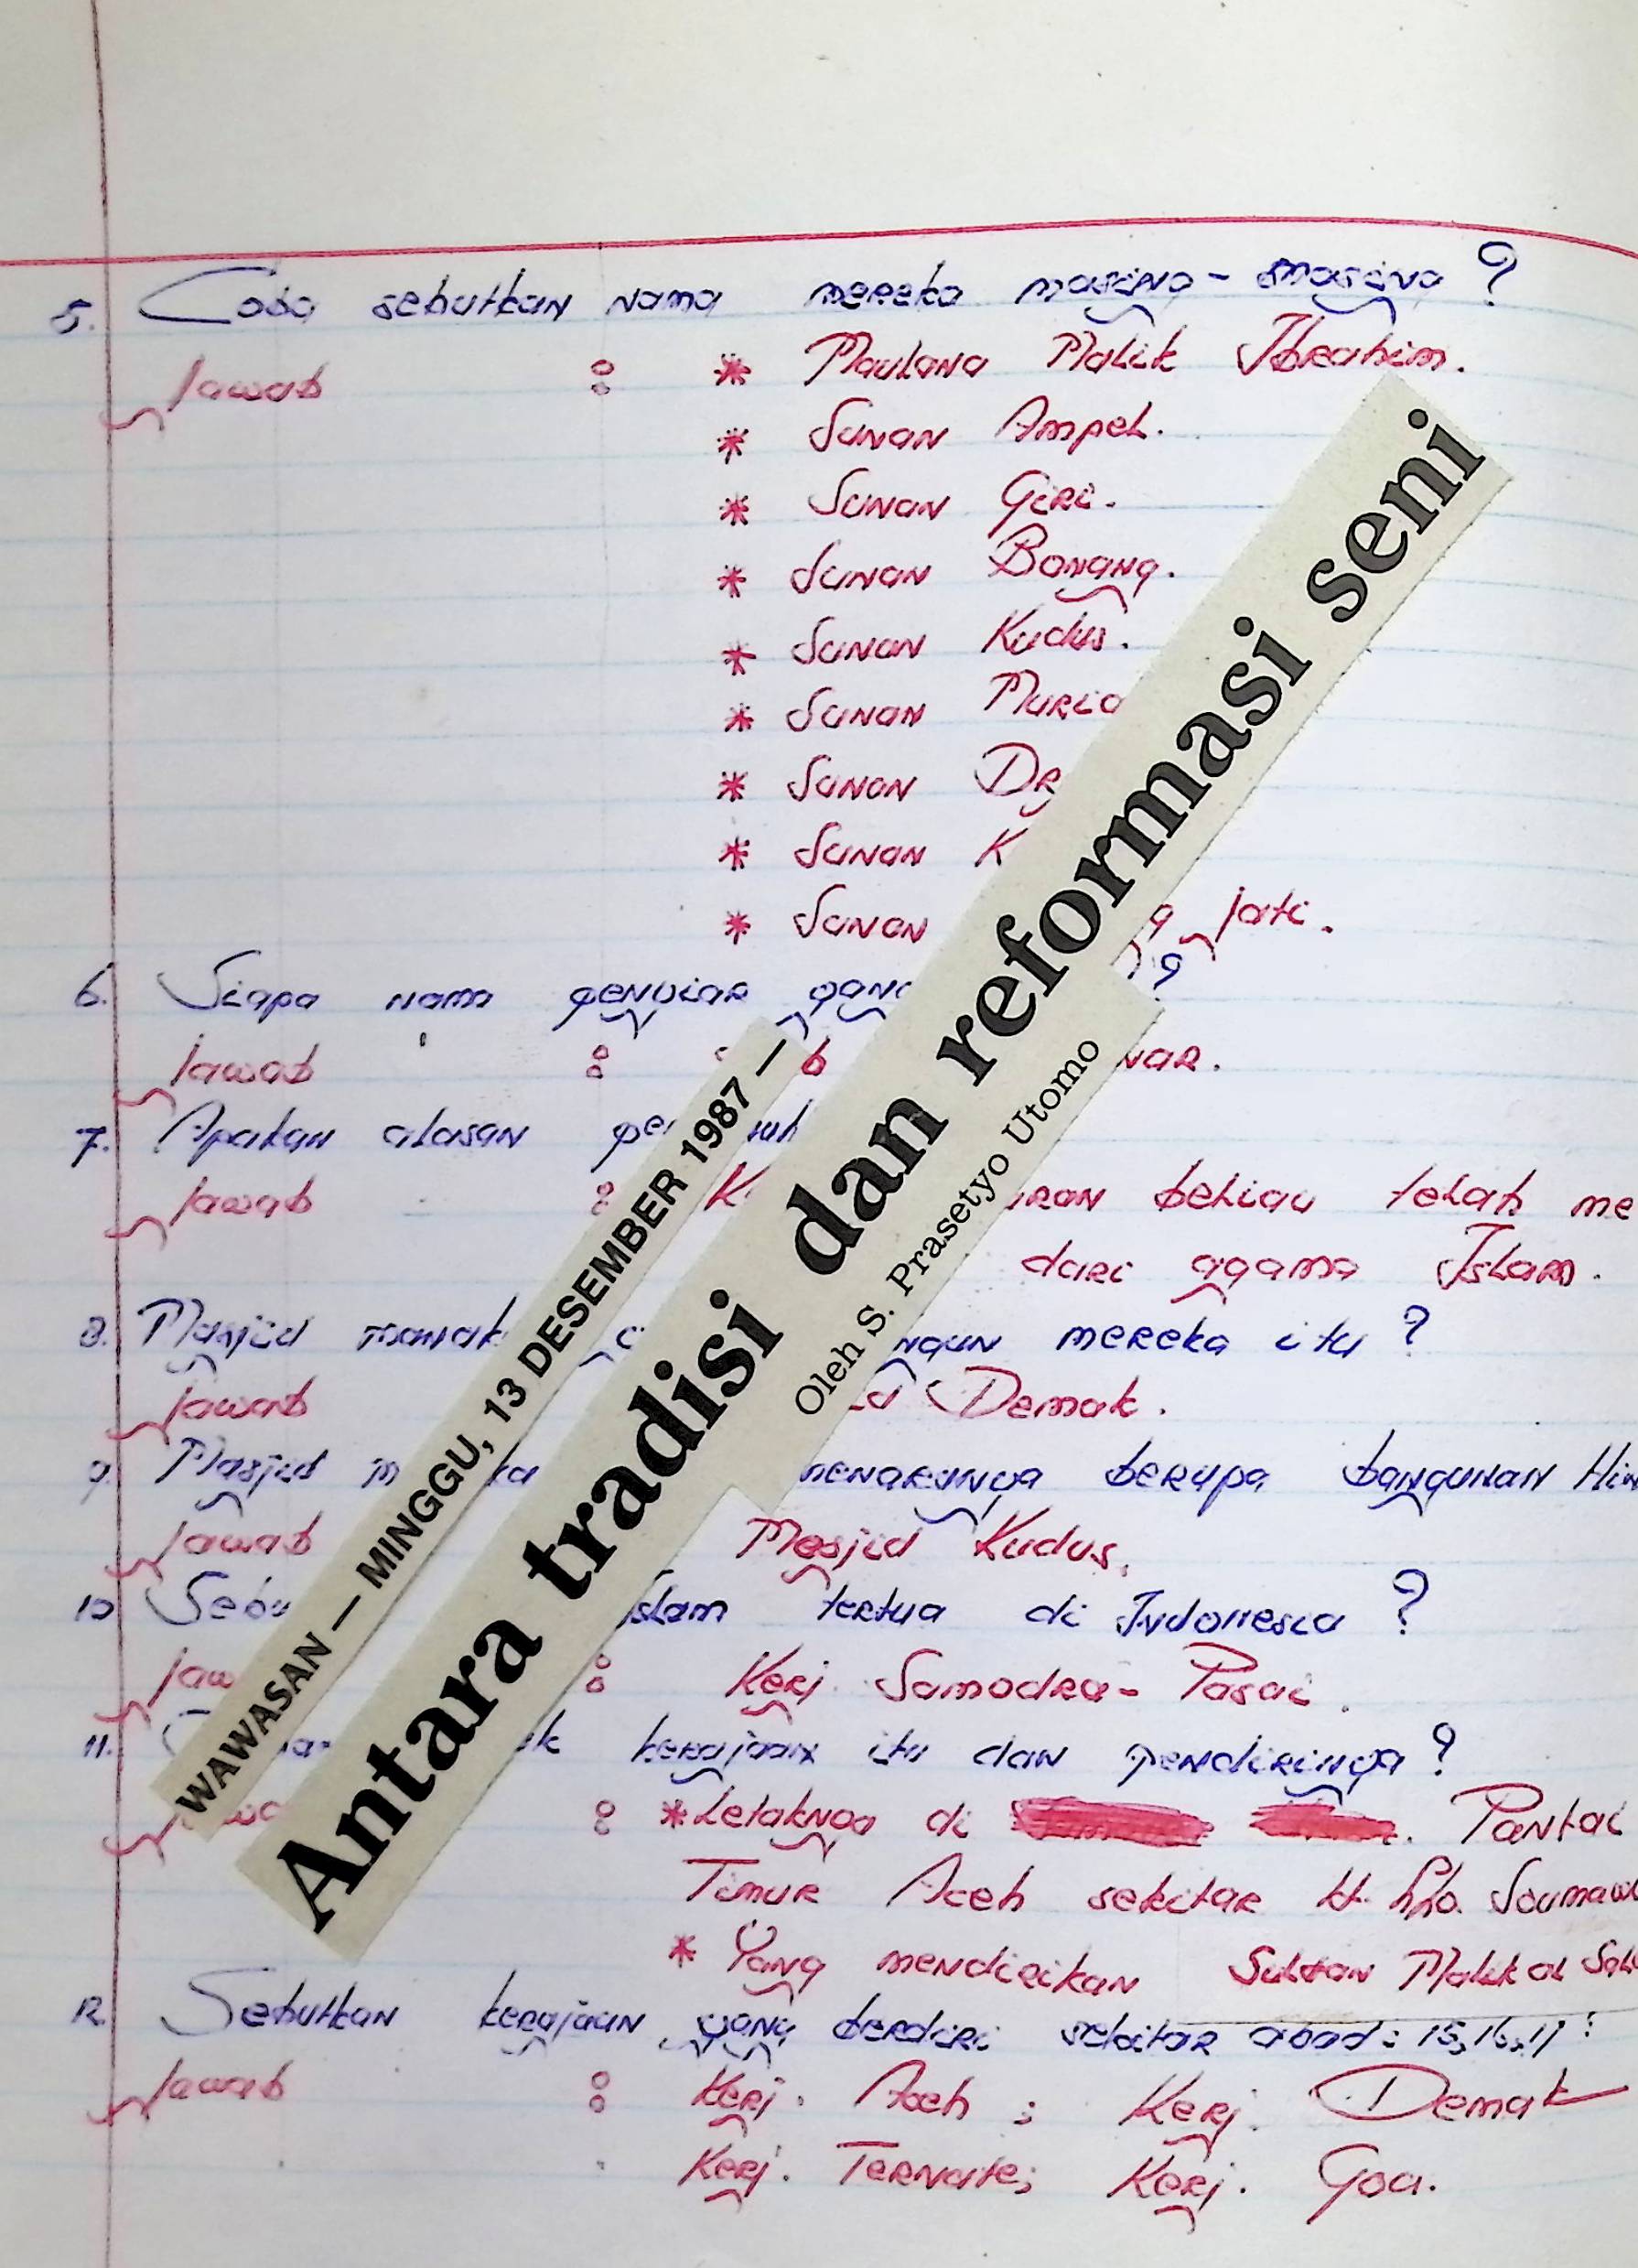 5. Coba sebutkan nama mereka masing-masing?
Jawab : * Maulana Malik Ibrahim.
* Sunan Ampel.
* Sunan Giri.
* Sunan Bonang.
* Sunan Kudus.
* Sunan Muria
* Sunan Dr
* Sunan K
* Sunan g jati.
6. Siapa nama penyiar yang ?
Jawab :
7. Apakah alasan
Jawab : beliau telah me
dari agama Islam.
8. Masjid manakah mereka itu ?
Jawab Demak.
9. Masjid menaranya berupa bangunan Hin
Jawab Mesjid Kudus.
10 Sebu Islam tertua di Indonesia ?
Jaw : Kerj. Samodra - Pasai.
11. kerajaan itu dan pendirinya ?
: * Letaknya di Pantai
Timur Aceh sekitar
* Yang mendirikan Sultan Malik al Sal
12. Sebutkan kerajaan yang berdiri sekitar abad : 15,16,17 :
Jawab : Kerj. Aceh ; Kerj. Demak
Kerj. Ternate; Kerj. Goa.
WAWASAN — MINGGU, 13 DESEMBER 1987 —
Antara tradisi dan reformasi seni
Oleh S. Prasetyo Utomo